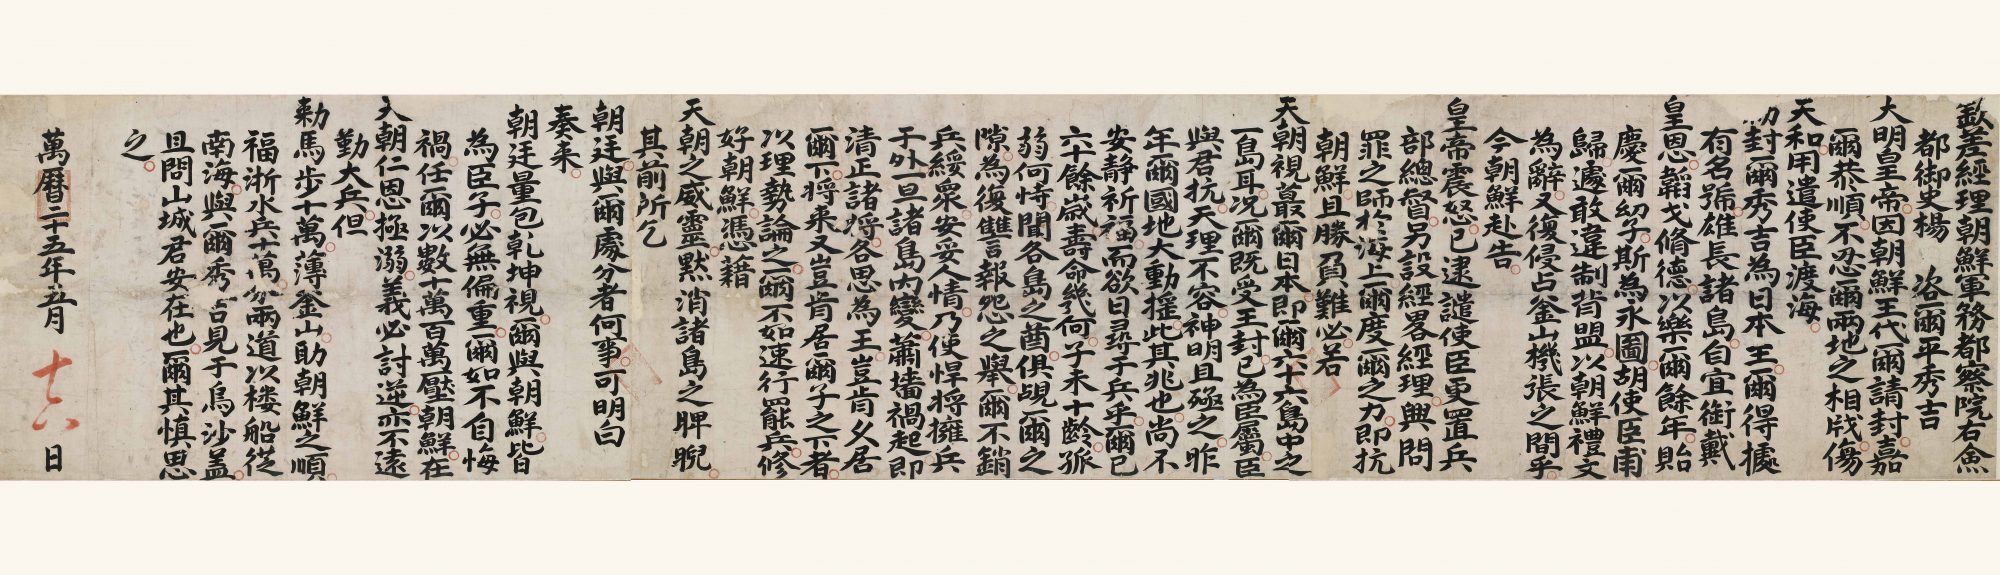 欽差經理朝鮮軍務都察院右僉
都御史楊 咨爾平秀吉
大明皇帝因朝鮮王代爾請封嘉
爾恭順不忍爾兩地之相戕傷
天和用遣使臣渡海
封爾秀吉為日本王爾得據
有名號雄長諸島自宜銜戴
皇恩韜戈脩德以樂爾餘年貽
慶爾幼子斯為永圖胡使臣甫
歸遽敢違制背盟以朝鮮禮文
為辭又復侵占釜山機張之間乎
今朝鮮赴告
皇帝震怒已逮譴使臣更置兵
部總督另設經畧經理興問
罪之師於海上爾度爾之力即抗
朝鮮且勝負難必若
天朝視蕞爾日本即爾六十六島中之
一島耳况爾既受王封已為臣屬臣
與君抗天理不容神明且殛之昨
年爾國地大動摧此其兆也尚不
安静祈福而欲日尋于兵乎爾已
六十餘歲壽命幾何子未十齡孤
弱何恃聞各島之酋俱覘爾之
隙為復讐報怨之舉爾不銷
兵綏衆安妥人情乃使悍将擁兵
于外一旦諸島内變蕭墻禍起即
清正諸将各思為王豈肯久居
爾下将来又豈肯居爾子之下者
以理勢論之爾不如速行罷兵修
好朝鮮憑藉
天朝之威靈默消諸島之睥睨
其前所乞
朝廷與爾處分者何事可明白
奏来
朝廷量包乾坤視爾與朝鮮皆
為臣子必無偏重爾如不自悔
禍任爾以數十萬百萬壓朝鮮在
天朝仁恩極溺義必討逆亦不遠
勤大兵但
勑馬步十萬薄釜山助朝鮮之順
福浙水兵十萬分兩道以楼船從
南海與爾秀吉見于鳥沙盖
且問山城君安在也爾其慎思
之
萬曆二十五年五月 十六 日